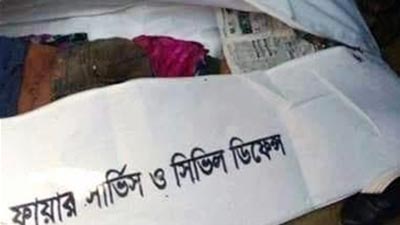 ফায়ার সার্ভিস ও সিভিল ডিফেন্স